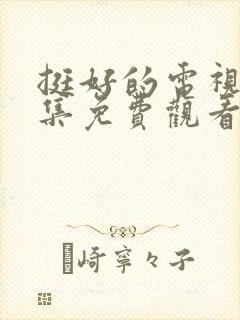 挺好的電視
集免費觀看
崎寧々子